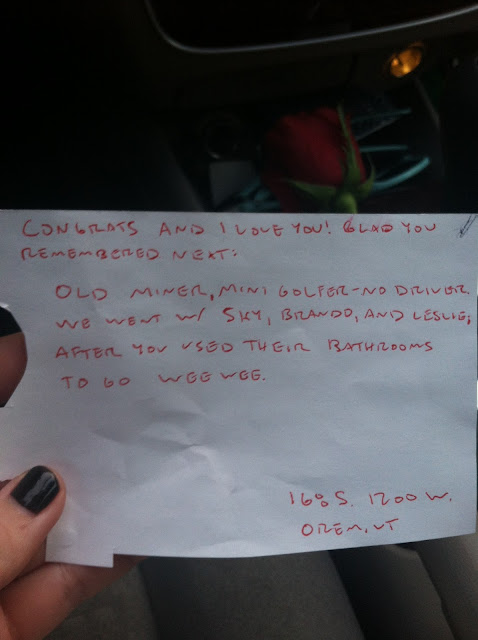 CONGRATS AND I LOVE YOU! GLAD YOU
REMEMBERED NEXT:
OLD MINER, MINI GOLFER-NO DRIVER
WE WENT W/ SKY, BRANDO, AND LESLIE,
AFTER YOU USED THEIR BATHROOMS
TO GO WEE WEE.
168 S. 1200 W.
OREM, UT